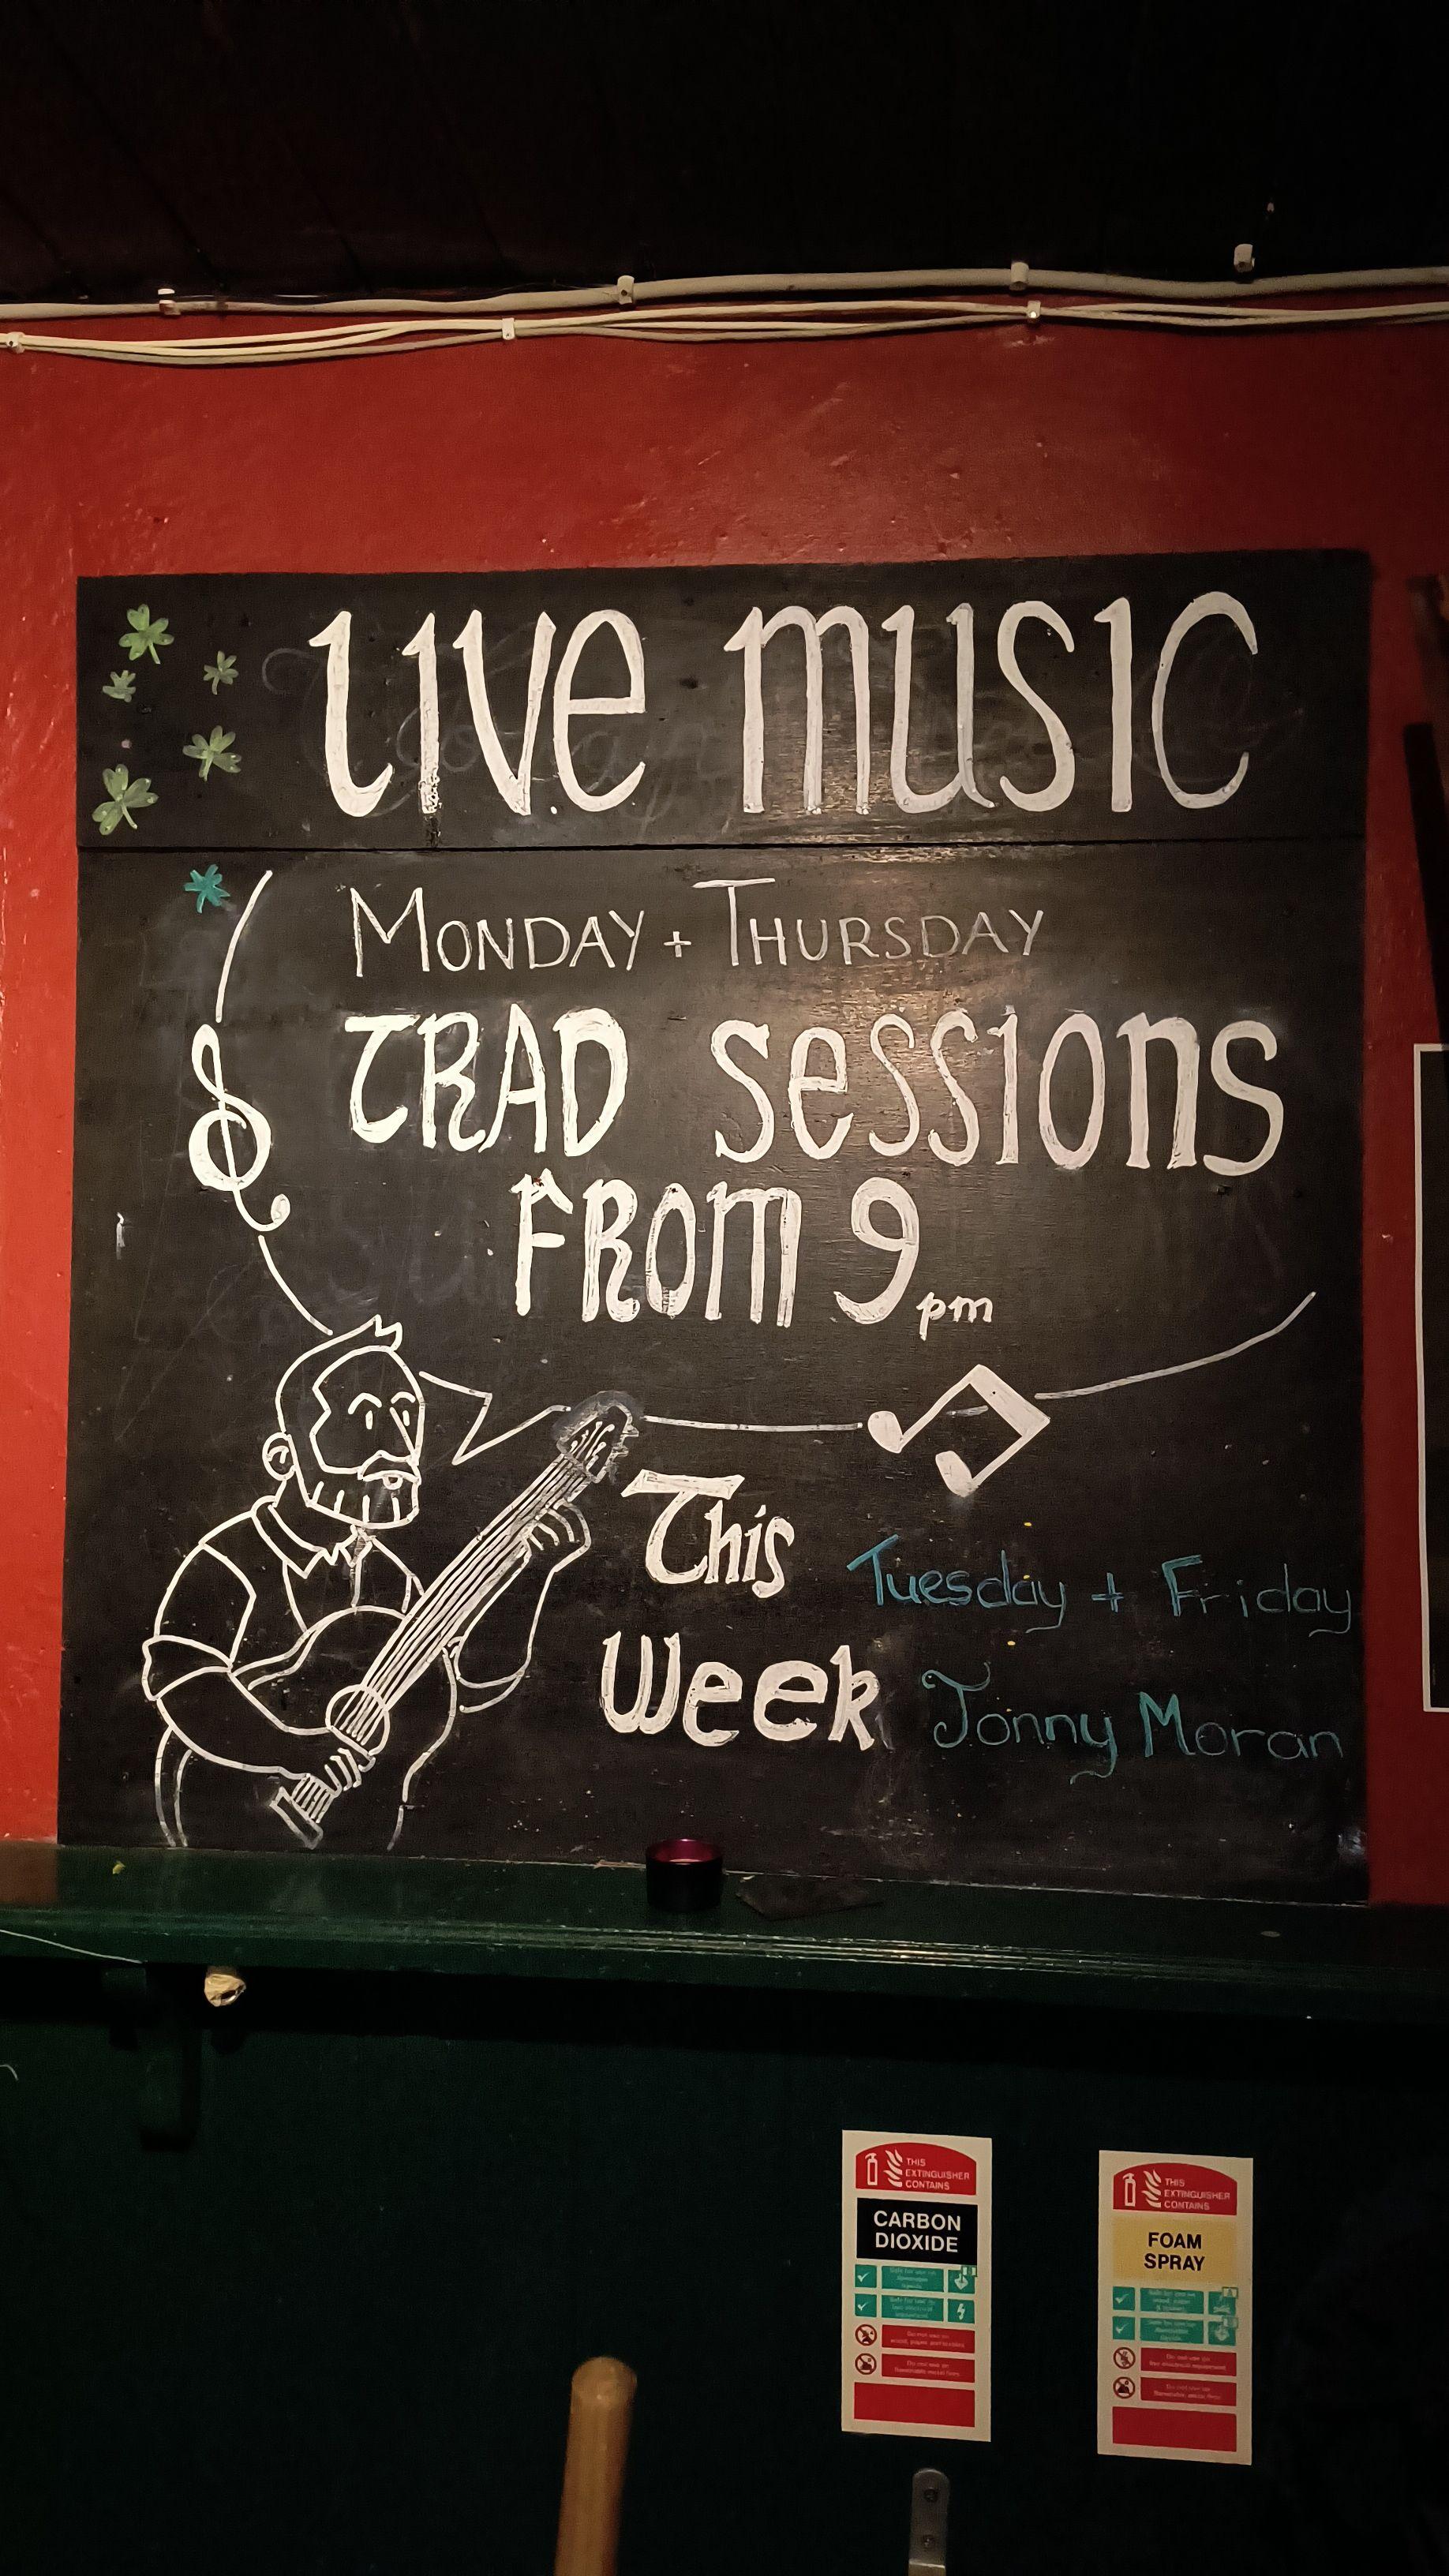 LIVE MUSIC
MONDAY + THURSDAY
TRAD SESSIONS
FROM 9pm
This
Week
Tuesday + Friday
Jonny Moran
THIS
EXTINGUISHER
CONTAINS
CARBON
DIOXIDE
THIS
EXTINGUISHER
CONTAINS
FOAM
SPRAY